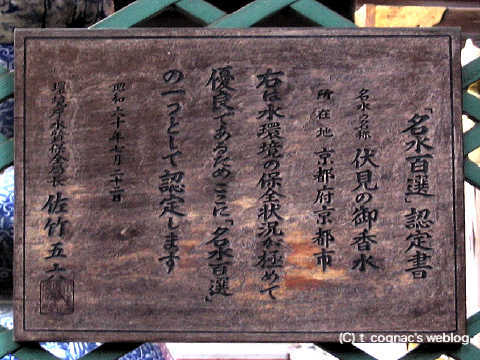 「名水百選」認定書
名水の名称 伏見の御香水
所在地 京都府京都市
右は水環境の保全状況が極めて
優良であるためここに「名水百選」
の一つとして認定します
昭和六十年七月二十二日
環境庁水質保全局長 佐竹五六
(C) t_cognac's weblog